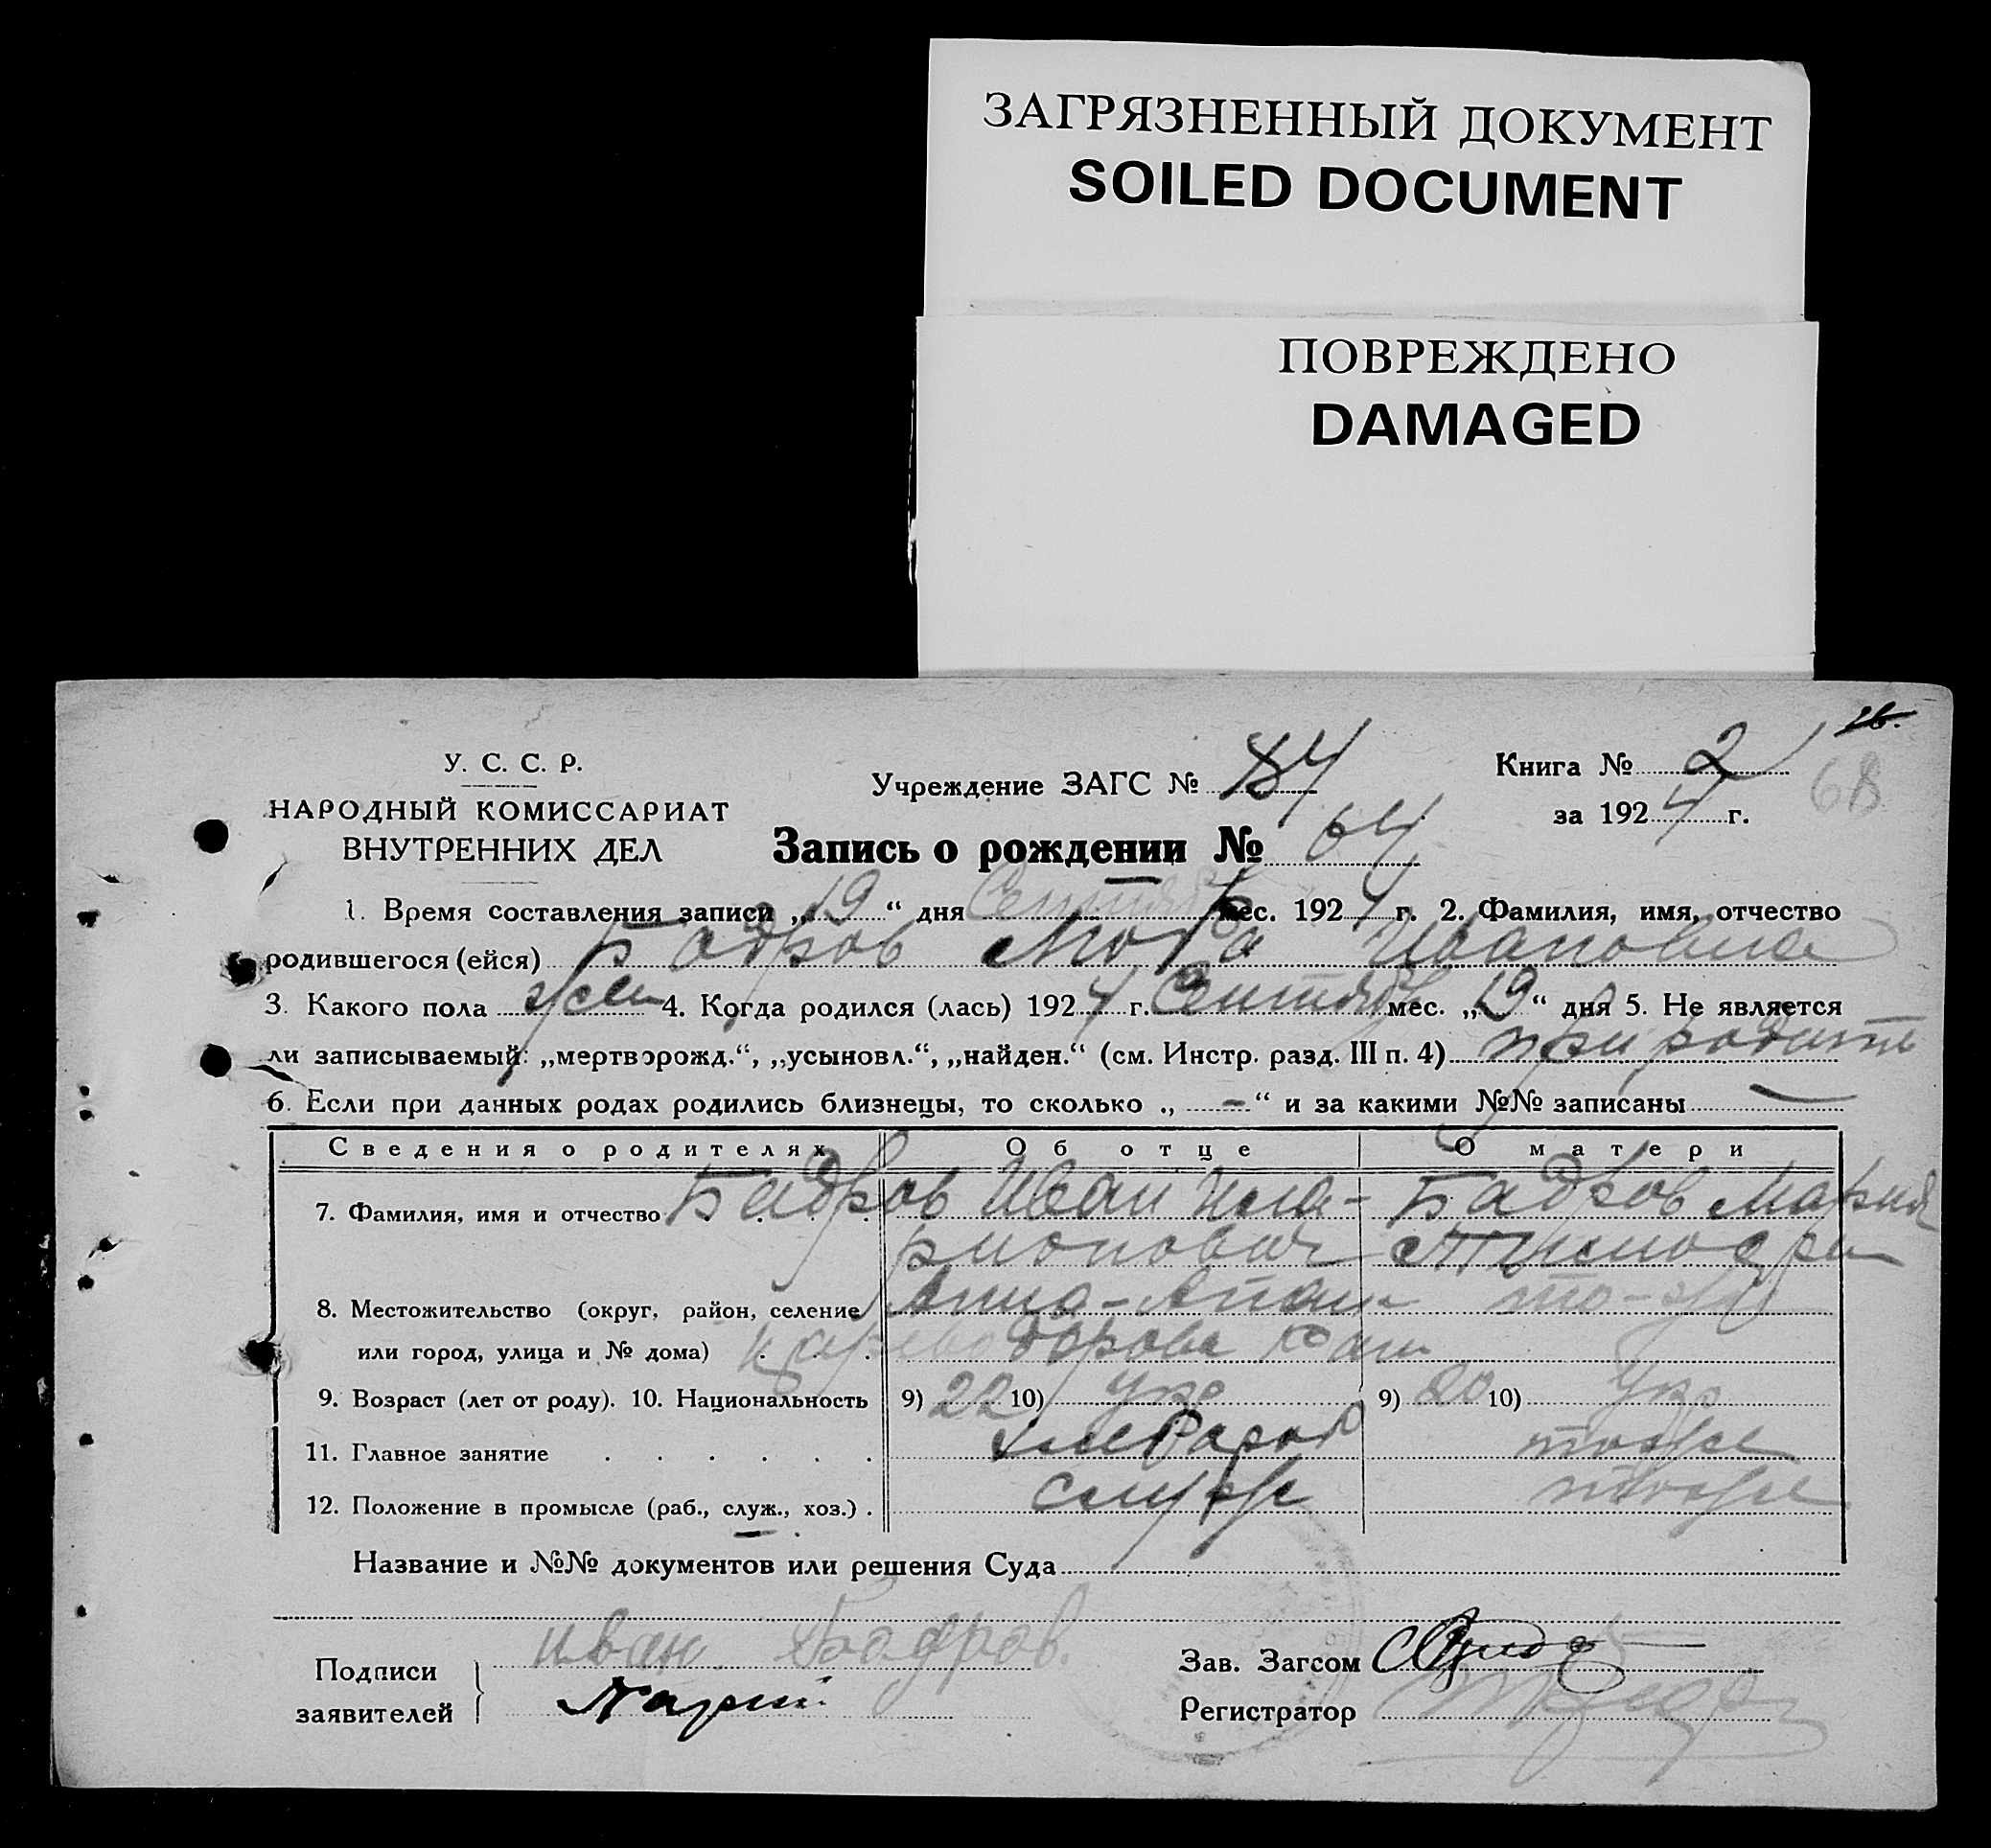 ЗАГРЯЗНЕННЫЙ ДОКУМЕНТ
SOILED DOCUMENT
ПОВРЕЖДЕНО
DAMAGED
У. С. С. Р.
НАРОДНЫЙ КОМИССАРИАТ
ВНУТРЕННИХ ДЕЛ
Учреждение ЗАГС № 84
Книга № 2
68
за 1924 г.
Запись о рождении № 64
1. Время составления записи „19“ дня Сентября мес. 1924 г. 2. Фамилия, имя, отчество
родившегося (ейся) Бадров Люба Ивановна
3. Какого пола жен 4. Когда родился (лась) 1924 г. Сентября мес. „19“ дня 5. Не является
ли записываемый: „мертворожд.“, „усыновл.“, „найден.“ (см. Инстр. разд. III п. 4) при родит
6. Если при данных родах родились близнецы, то сколько „ – “ и за какими №№ записаны —
Сведения о родителях Об отце О матери
7. Фамилия, имя и отчество Бадров Иван Ила- Бадров Мария
рионович Тимофеи
8. Местожительство (округ, район, селение Анно- то-же
или город, улица и № дома)
9. Возраст (лет от роду). 10. Национальность 9) 22 10) Укр 9) 20 10) Укр
11. Главное занятие тоже
12. Положение в промысле (раб., служ., хоз.) служ тоже
Название и №№ документов или решения Суда
Подписи заявителей Иван Бадров.
Зав. Загсом
Регистратор